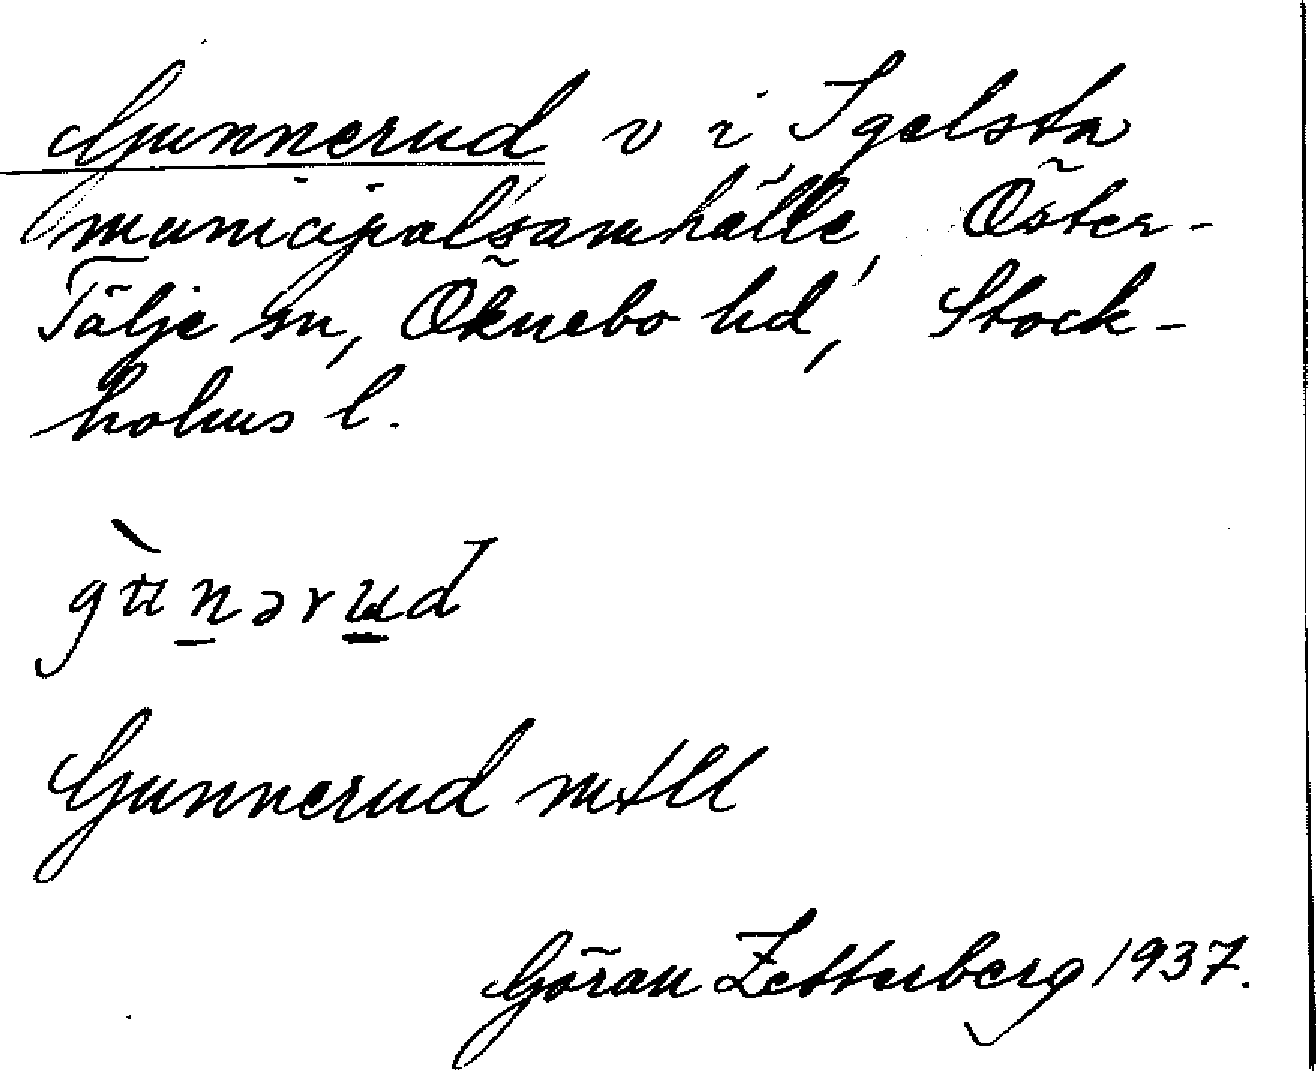 Gunnerud v i Igelsta
municipalsamhälle, Öster-
Tälje sn, Öknebo hd, Stock-
holms l.
gʉ̀n̲əru̲d
Gunnerud mtll
Göran Zetterberg 1937.